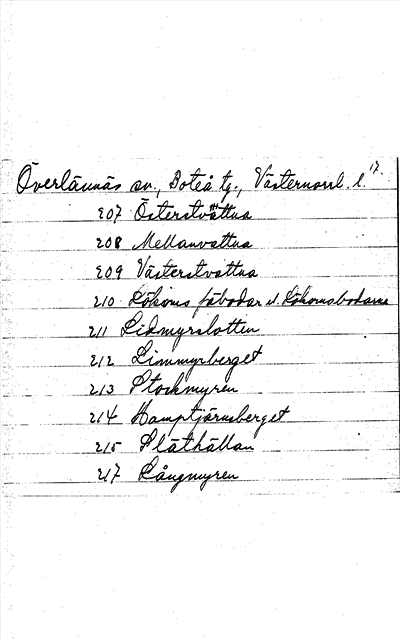 Överlännäs sn., Boteå tg., Västernorrl. l. 17.
207 Österstvattna
208 Mellanvattna
209 Västerstvattna
210 Lökoms fäbodar el. Lökomsbodarna
211 Lidmyrslotten
212 Limmyrberget
213 Stockmyren
214 Hamptjärnsberget
215 Släthällan
217 Långmyren